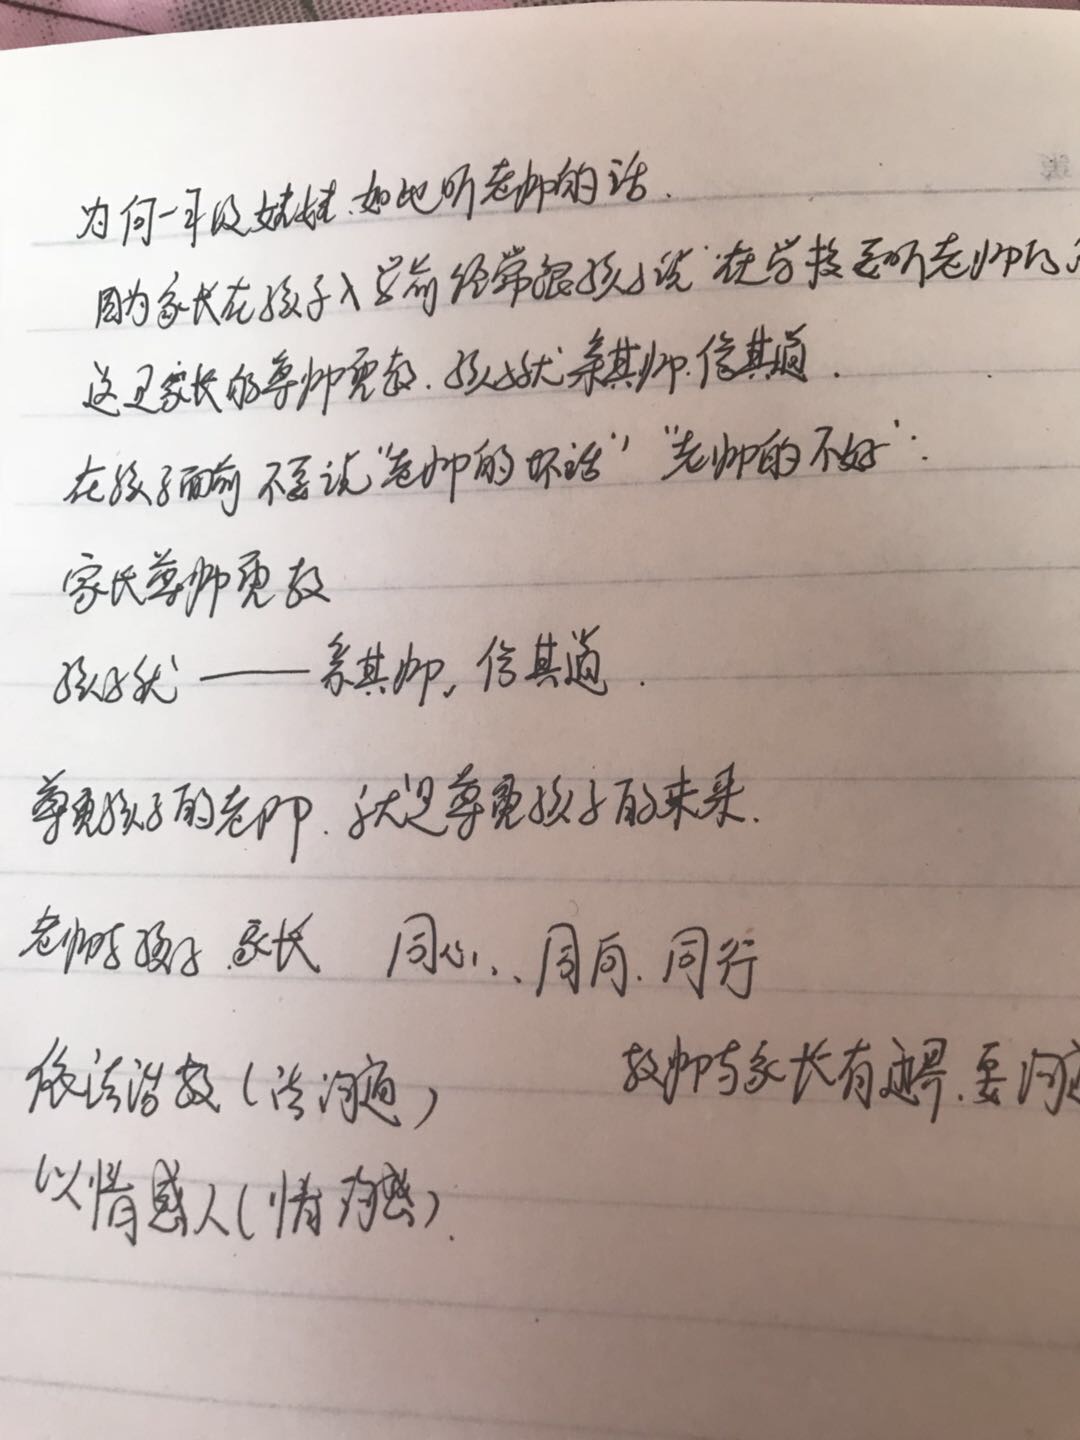 为何一年级娃娃、如此听老师的话.
因为家长在孩子入学前经常跟孩子说"在学校要听老师的
这是家长的尊师重教.孩子就亲其师.信其道.
在孩子面前不要说"老师的坏话""老师的不好":
家长尊师重教
孩子就——亲其师,信其道.
尊重孩子的老师.就是尊重孩子的未来.
老师与孩子.家长 同心、同向.同行
依法治教(法沟通) 教师与家长有边界.要沟通
以情感人(情 感).